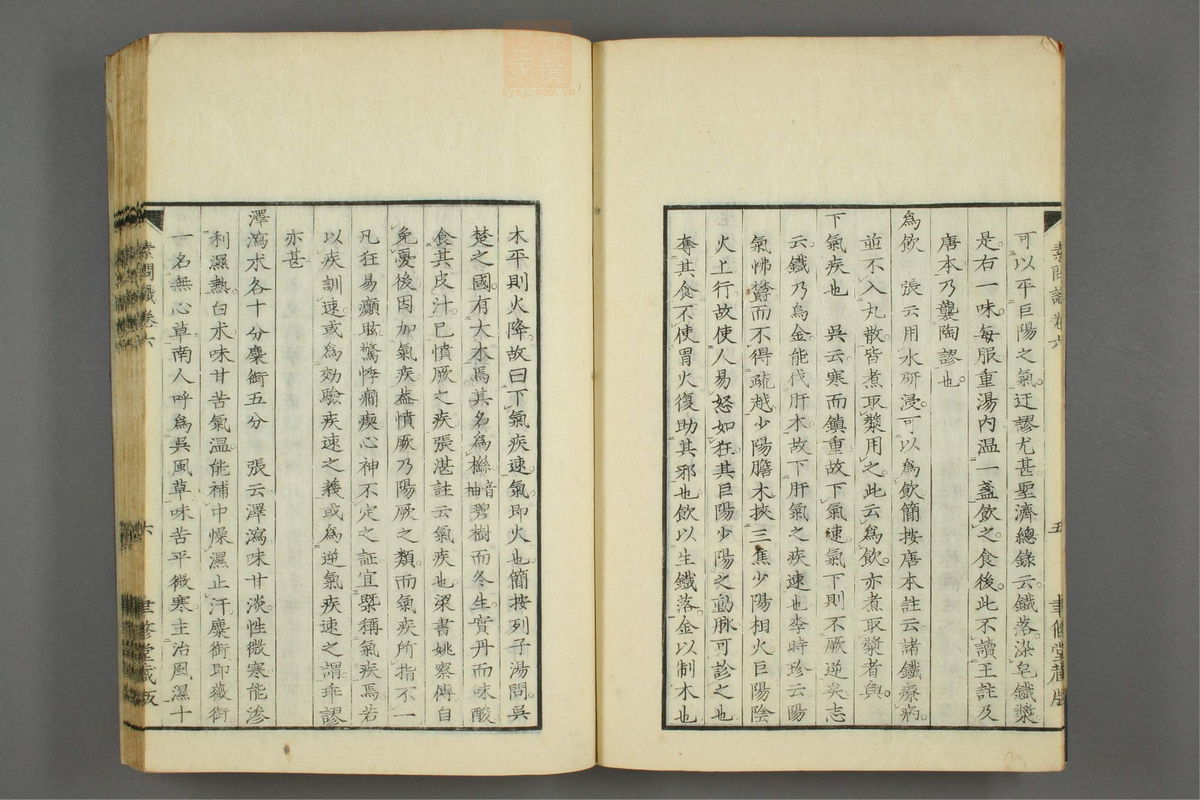 可以平巨陽之氣迂謬尤甚聖濟總錄云鐵落染皂鐵漿
是右一味每服重湯内温一盞飲之食後此不讀王註及
唐本乃襲陶謬也
爲飲　張云用水研浸可以爲飲簡按唐本註云諸鐵療病
並不入丸散皆煮取漿用之此云爲飲亦煮取漿者與
下氣疾也　吳云寒而鎮重故下氣速氣下則不厥逆矣志
云鐵乃烏金能伐肝木故下肝氣之疾速也李時珍云陽
氣怫鬱而不得疏越少陽膽木挾三焦少陽相火巨陽陰
火上行故使人易怒如狂其巨陽少陽之動脉可診之也
奪其食不使胃火復助其邪也飲以生鐵落金以制木也
素問識卷六
五
聿修堂藏版
木平則火降故曰下氣疾速氣即火也簡按列子湯問吳
楚之國有大木焉其名爲櫾音柚碧樹而冬生實丹而味酸
食其皮汁已憤厥之疾張湛註云氣疾也梁書姚察傳自
免憂後因加氣疾蓋憤厥乃陽厥之類而氣疾所指不一
凡狂易癲眩驚悸癇瘈心神不定之証宜槩稱氣疾焉若
以疾訓速或爲効驗疾速之義或爲逆氣疾速之謂乖謬
亦甚
澤瀉朮各十分麋銜五分　張云澤瀉味甘淡性微寒能滲
利濕熱白朮味甘苦氣温能補中燥濕止汗麋銜即薇銜
一名無心草南人呼爲吳風草味苦平微寒主治風濕十
素問識卷六
六
聿修堂藏版
zysj.com.cn